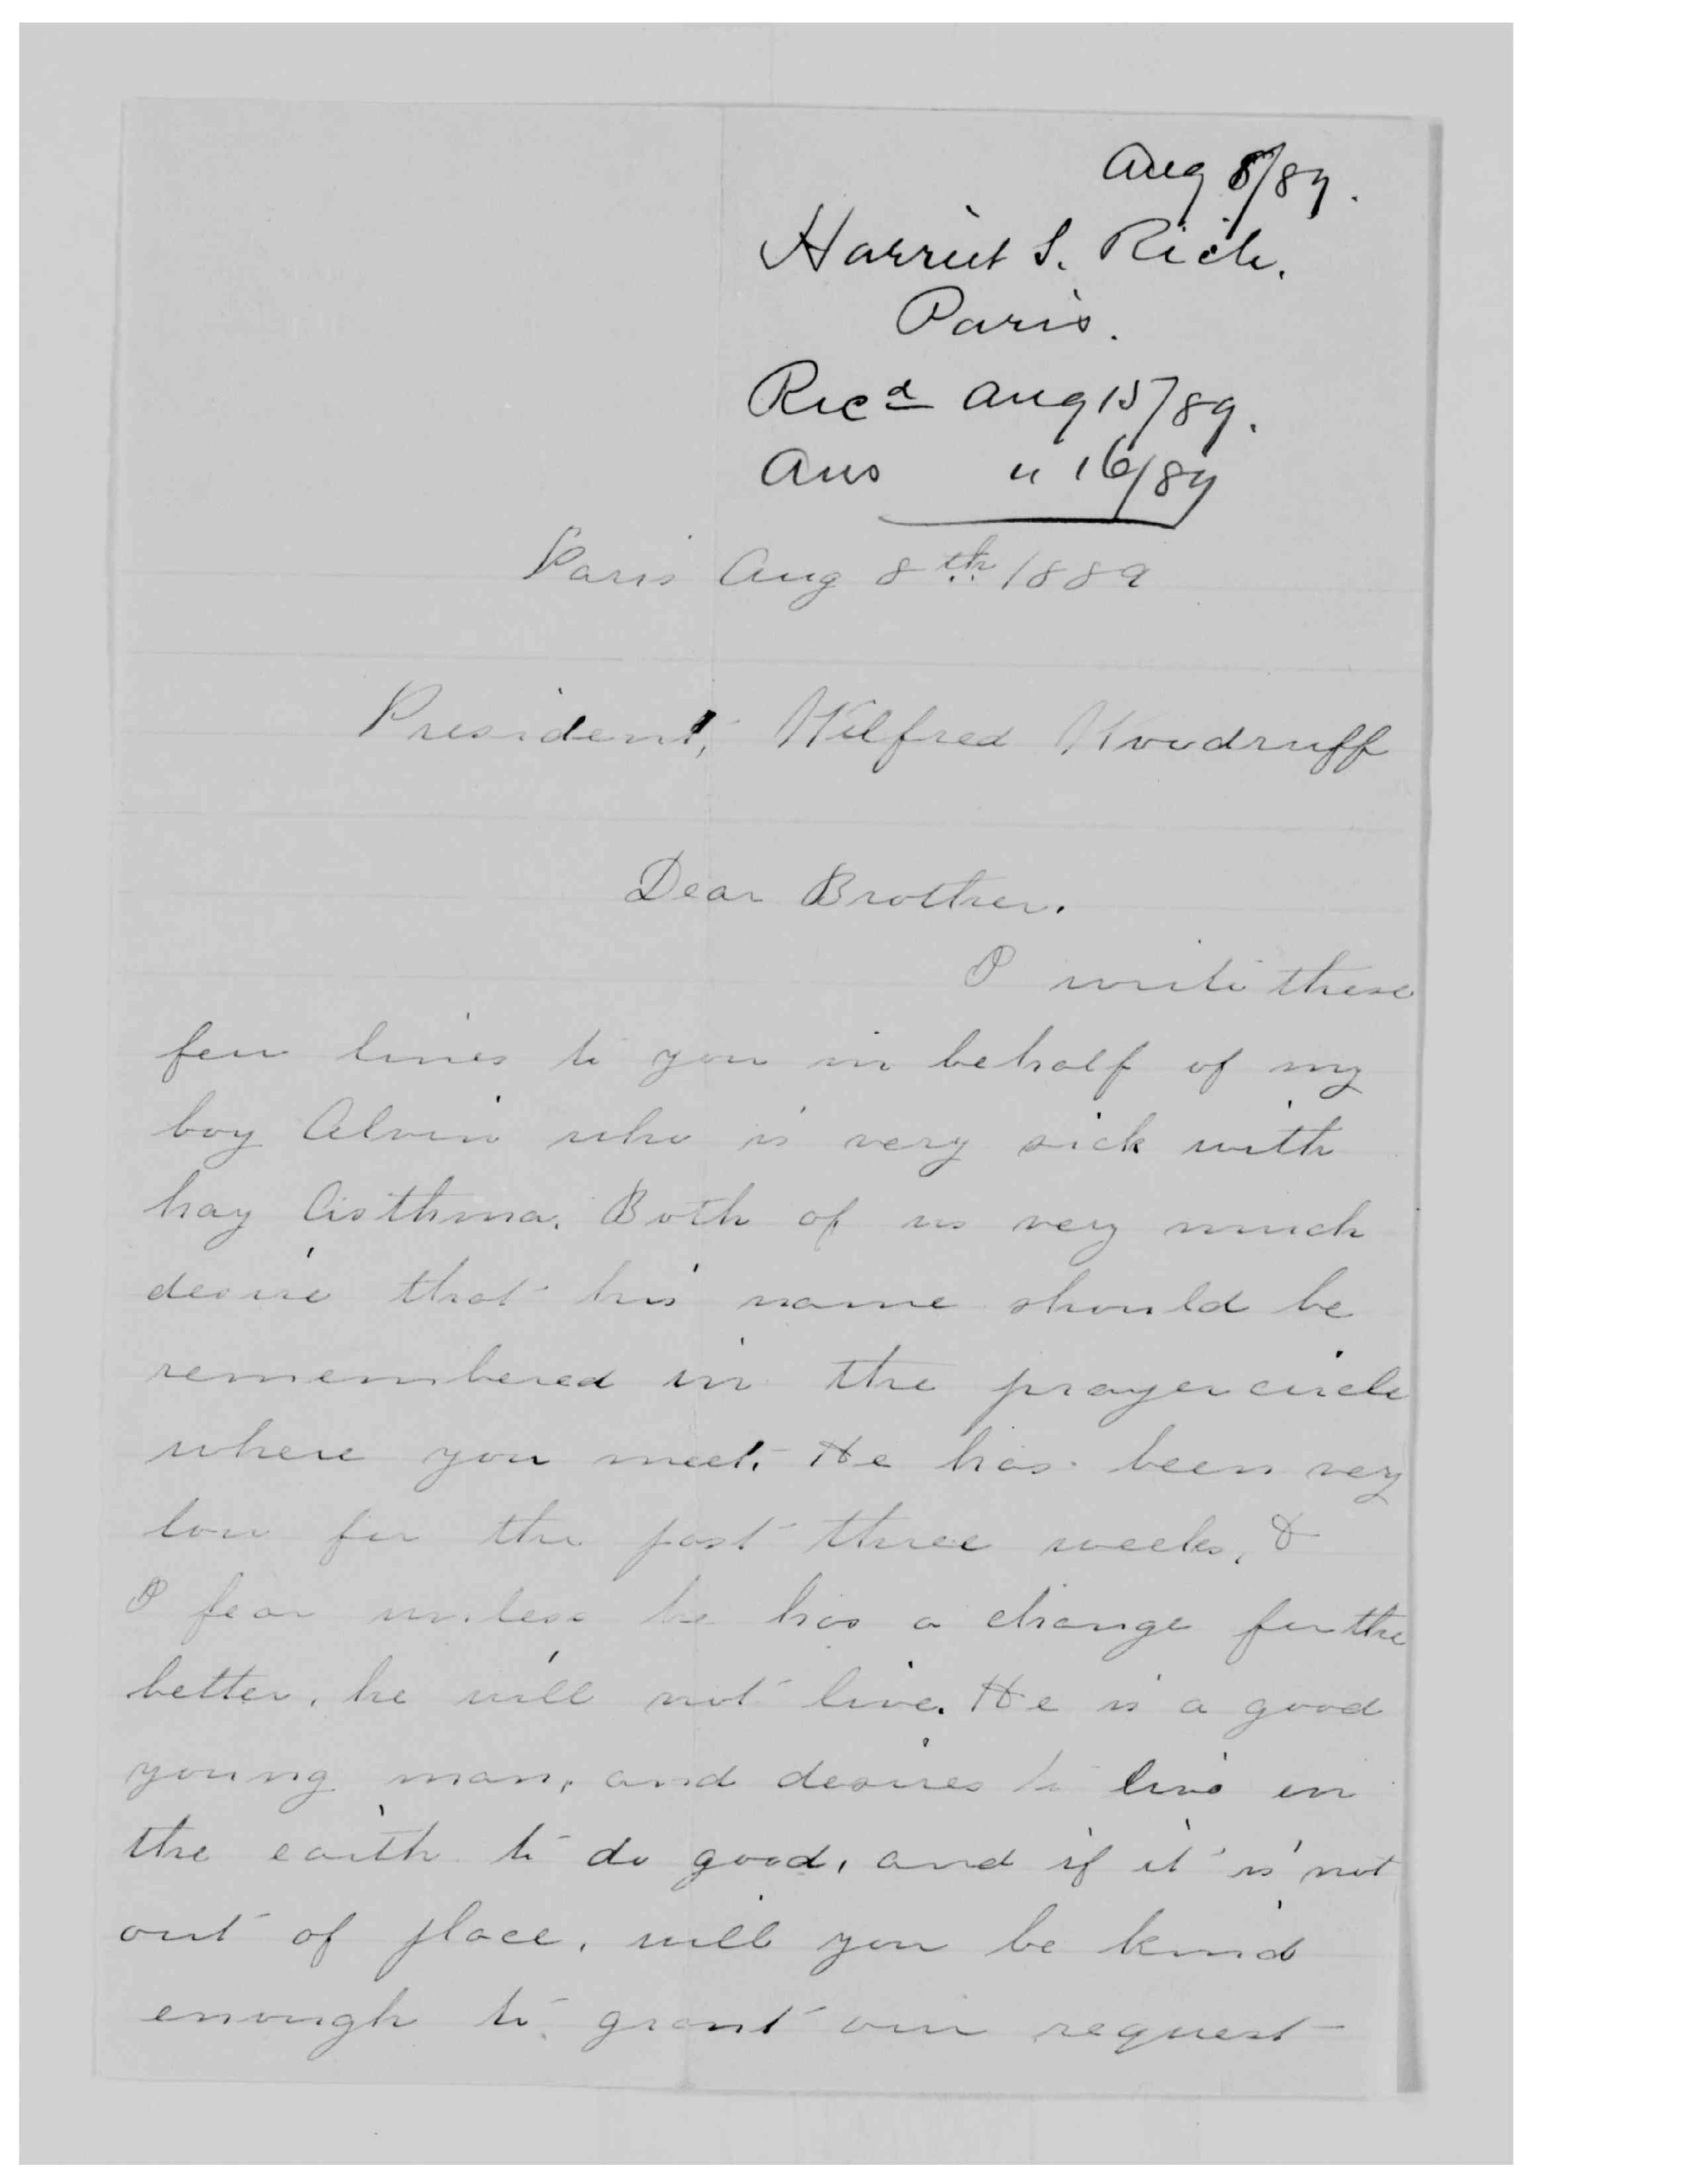 Aug 8/89.
Harriet S. Rich.
Paris.
Recd Aug 15/89.
Ans " 16/89
Paris Aug 8th 1889
President, Wilfred Woodruff
Dear Brother.
I write these
few lines to you in behalf of my
boy Alvin who is very sick with
hay Asthma. Both of us very much
desire that his name should be
remembered in the prayer circle
where you meet. He has been very
low for the past three weeks, &
I fear unless he has a change for the
better, he will not live. He is a good
young man, and desires to live in
the earth to do good, and if it is not
out of place, will you be kind
enough to grant our request